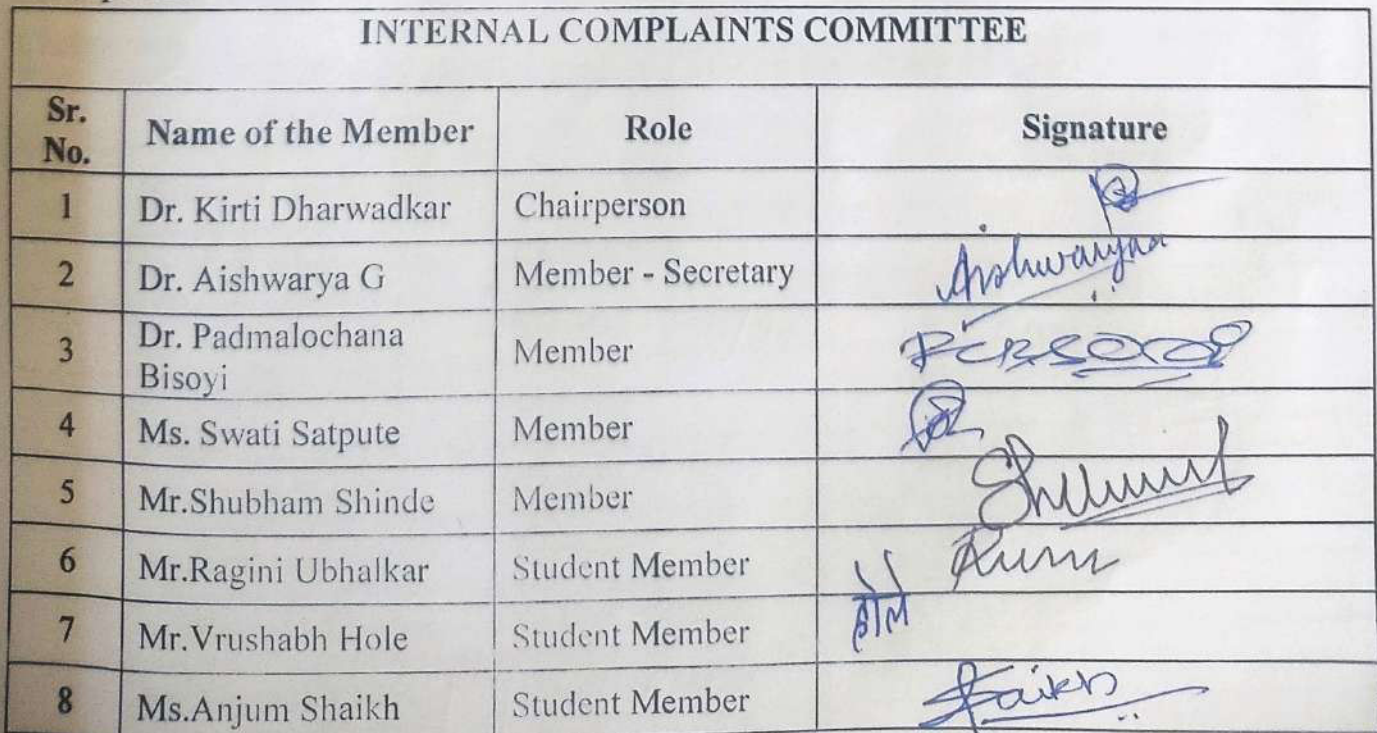 INTERNAL COMPLAINTS COMMITTEE
Sr. No. Name of the Member Role Signature
1 Dr. Kirti Dharwadkar Chairperson
2 Dr. Aishwarya G Member - Secretary Aishwaryaa
3 Dr. Padmalochana Bisoyi Member
4 Ms. Swati Satpute Member
5 Mr.Shubham Shinde Member
6 Mr.Ragini Ubhalkar Student Member
7 Mr.Vrushabh Hole Student Member
8 Ms.Anjum Shaikh Student Member